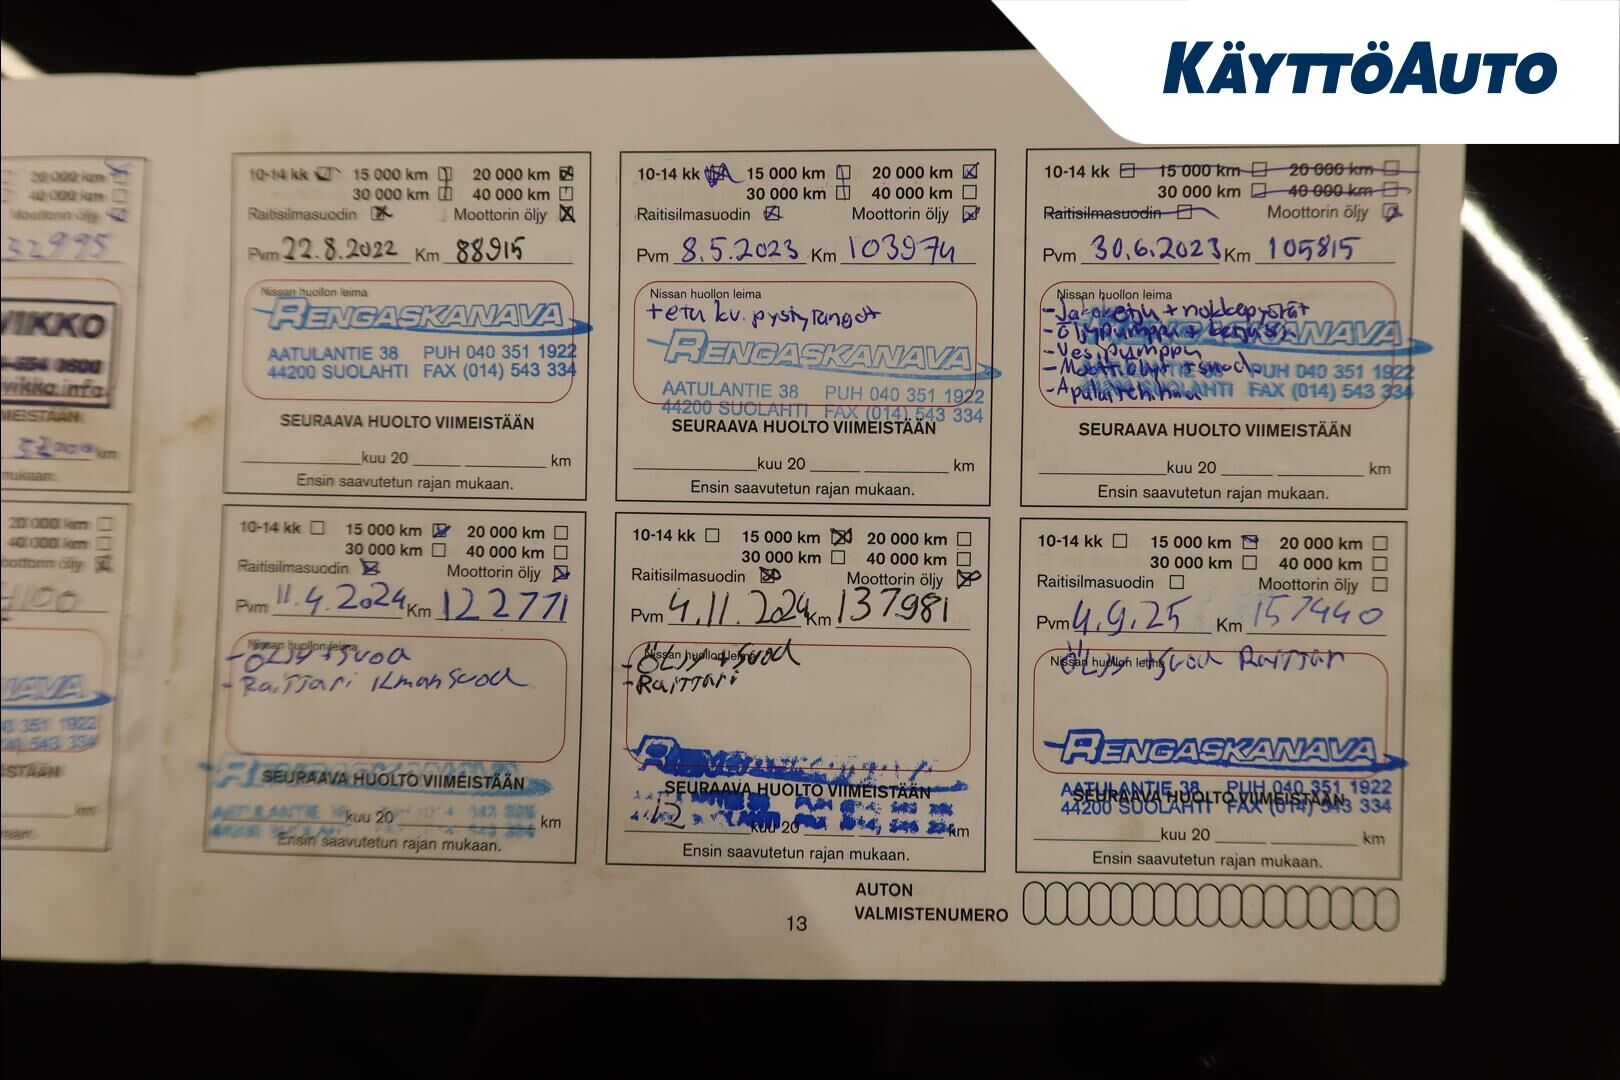 KÄYTTÖAUTO
20 000 km
40 000 km
Moottorin öljy
32995
VIKKO
-554 0600
vikko.info
MEISTÄÄN
km
mukaan.
10-14 kk 15 000 km 20 000 km
30 000 km 40 000 km
Raitisilmasuodin Moottorin öljy
Pvm 22.8.2022 Km 88915
Nissan huollon leima
RENGASKANAVA
AATULANTIE 38 PUH 040 351 1922
44200 SUOLAHTI FAX (014) 543 334
SEURAAVA HUOLTO VIIMEISTÄÄN
kuu 20 km
Ensin saavutetun rajan mukaan.
10-14 kk 15 000 km 20 000 km
30 000 km 40 000 km
Raitisilmasuodin Moottorin öljy
Pvm 8.5.2023 Km 103974
Nissan huollon leima
+ etu kv. pystytangot
RENGASKANAVA
AATULANTIE 38 PUH 040 351 1922
44200 SUOLAHTI FAX (014) 543 334
SEURAAVA HUOLTO VIIMEISTÄÄN
kuu 20 km
Ensin saavutetun rajan mukaan.
10-14 kk 15 000 km 20 000 km
30 000 km 40 000 km
Raitisilmasuodin Moottorin öljy
Pvm 30.6.2023 Km 105815
Nissan huollon leima
- Jakoketju + nokkapyörät
- Öljypumppu + ketju
- Vesipumppu
- Moott.öljyt + suod.
- Apulaitehihna
RENGASKANAVA
AATULANTIE 38 PUH 040 351 1922
44200 SUOLAHTI FAX (014) 543 334
SEURAAVA HUOLTO VIIMEISTÄÄN
kuu 20 km
Ensin saavutetun rajan mukaan.
20 000 km
40 000 km
Moottorin öljy
4100
351 1922
543 334
km
10-14 kk 15 000 km 20 000 km
30 000 km 40 000 km
Raitisilmasuodin Moottorin öljy
Pvm 11.4.2024 Km 122771
Nissan huollon leima
- ÖLJY + Suod
- Raittari ilmansuod
RENGASKANAVA
SEURAAVA HUOLTO VIIMEISTÄÄN
kuu 20 km
Ensin saavutetun rajan mukaan.
10-14 kk 15 000 km 20 000 km
30 000 km 40 000 km
Raitisilmasuodin Moottorin öljy
Pvm 4.11.2024 Km 137981
Nissan huollon leima
- ÖLJY + Suod
- Raittari
SEURAAVA HUOLTO VIIMEISTÄÄN
12 kuu 20 km
Ensin saavutetun rajan mukaan.
10-14 kk 15 000 km 20 000 km
30 000 km 40 000 km
Raitisilmasuodin Moottorin öljy
Pvm 4.9.25 Km 157440
Nissan huollon leima
ÖLJY + Suod Raittari
RENGASKANAVA
AATULANTIE 38 PUH 040 351 1922
44200 SUOLAHTI FAX (014) 543 334
SEURAAVA HUOLTO VIIMEISTÄÄN
kuu 20 km
Ensin saavutetun rajan mukaan.
AUTON
VALMISTENUMERO
13